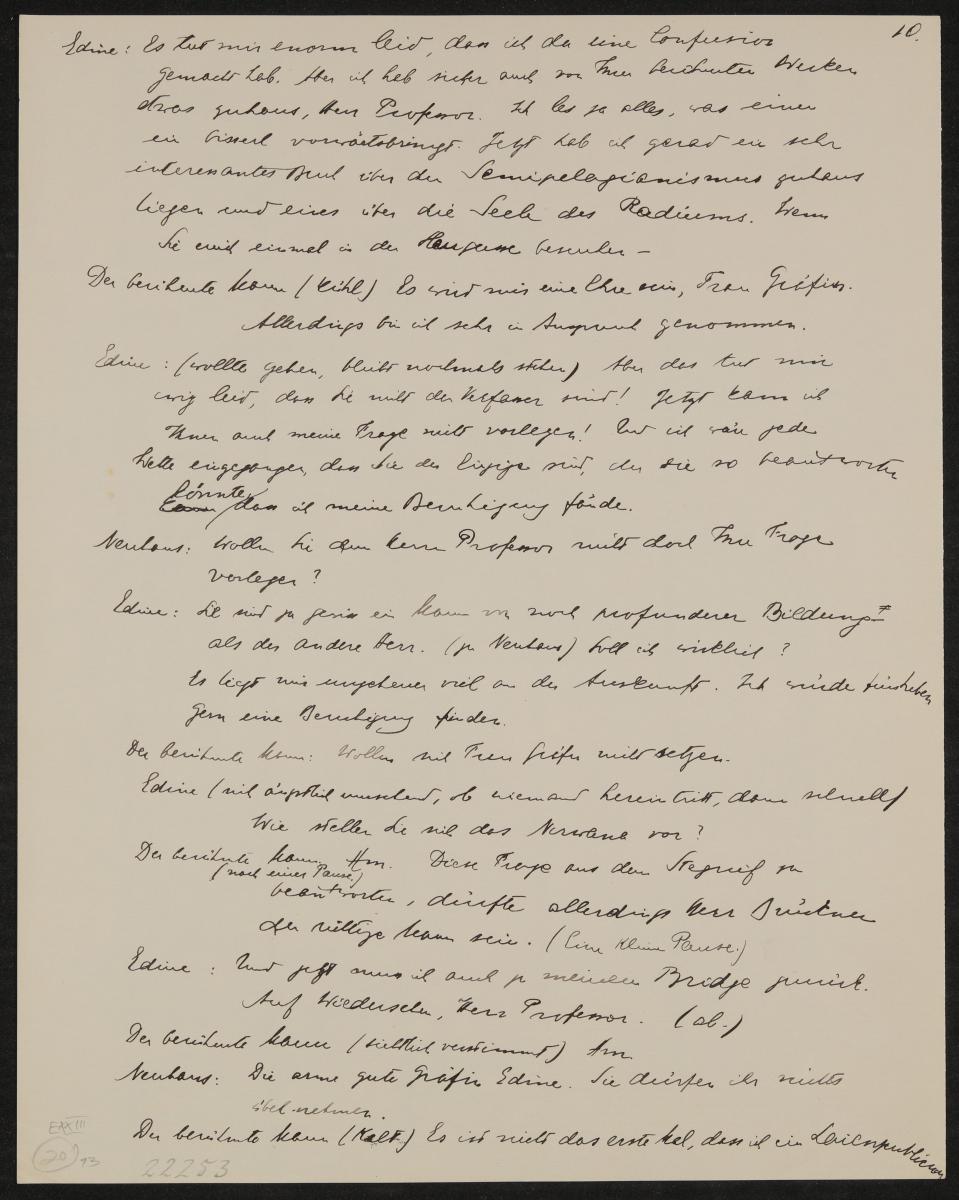 10.
Edine: Es tut mir enorm leid, dass ich da eine Confusion
gemacht hab. Aber ich hab sicher auch von Ihren berühmten Werken
etwas zuhaus, Herr Professor. Ich les ja alles, was einen
ein bisserl vorwärtsbringt. Jetzt hab ich gerad ein sehr
interessantes Buch über den Semipelagianismus zuhaus
liegen und eines über die Seele des Radiums. Wenn
Sie mich einmal in der Herrengasse besuchen –
Der berühmte Mann (kühl) Es wird mir eine Ehre sein, Frau Gräfin.
Allerdings bin ich sehr in Anspruch genommen.
Edine: (wollte gehen, bleibt nochmals stehen) Aber das tut mir
ewig leid, dass Sie nicht der Verfasser sind! Jetzt kann ich
Ihnen auch meine Frage nicht vorlegen! Und ich wäre jede
Wette eingegangen, dass Sie der Einzige sind, der sie so beantworten
könnte
dass ich meine Beruhigung fände.
Neuhaus: Wollen Sie dem Herrn Professor nicht doch Ihre Frage
vorlegen?
Edine: Sie sind ja gewiss ein Mann von noch profunderer Bildung
als der andere Herr. (zu Neuhaus) Soll ich wirklich?
Es liegt mir ungeheuer viel an der Auskunft. Ich würde fürs Leben
gern eine Beruhigung finden.
Der berühmte Mann: Wollen sich Frau Gräfin nicht setzen.
Edine (sich ängstlich umsehend, ob niemand hereintritt, dann schnell)
Wie stellen Sie sich das Nirwana vor?
Der berühmte Mann Hm. Diese Frage aus dem Stegreif zu
(nach einer Pause.)
beantworten, dürfte allerdings Herr Brückner
der richtige Mann sein. (Eine kleine Pause.)
Edine: Und jetzt muss ich auch zu meinem Bridge zurück.
Auf Wiedersehen, Herr Professor. (ab.)
Der berühmte Mann (sichtlich verstimmt) Hm
Neuhaus: Die arme gute Gräfin Edine. Sie dürfen ihr nichts
übel nehmen.
Der berühmte Mann (Kalt.) Es ist nicht das erste Mal, dass ich ein Laienpublicum
E XXIII
20) 93
22253